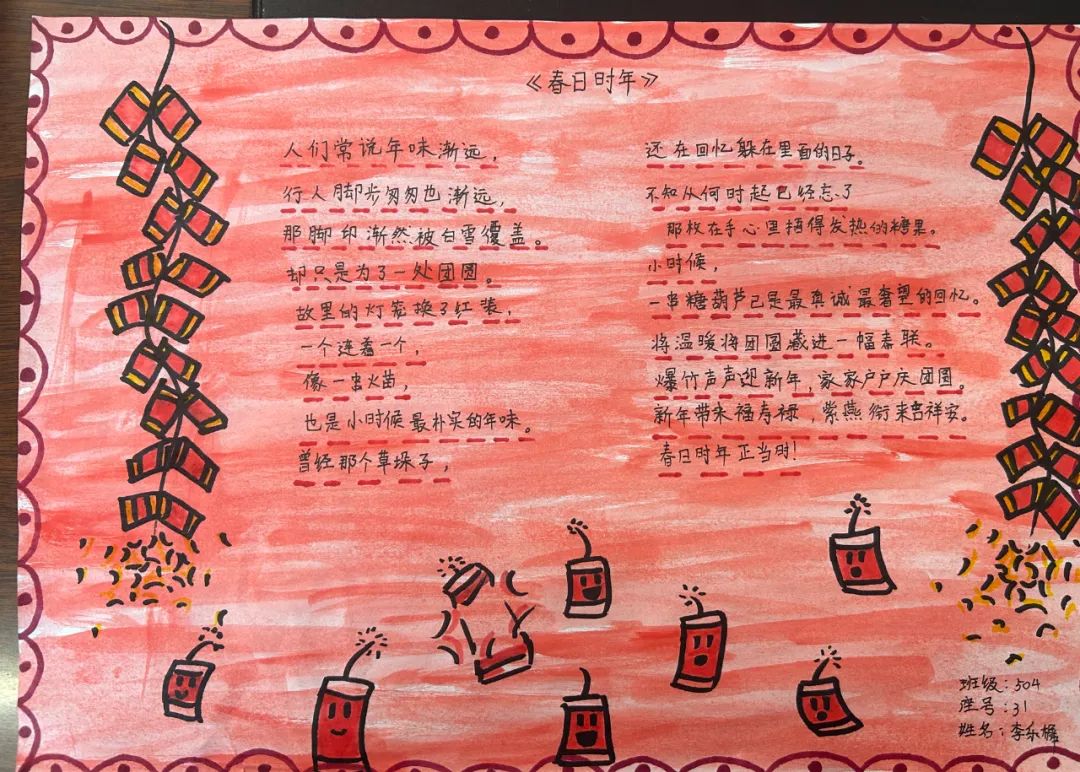 《春日时年》
人们常说年味渐远，
行人脚步匆匆也渐远，
那脚印渐然被白雪覆盖。
却只是为了一处团圆。
故里的灯笼换了红装，
一个连着一个，
像一串火苗，
也是小时候最朴实的年味。
曾经那个草垛子，
还在回忆躲在里面的日子。
不知从何时起已经忘了
那枚在手心里捂得发热的糖果。
小时候，
一串糖葫芦已是最真诚最奢望的回忆。
将温暖将团圆藏进一幅春联。
爆竹声声迎新年，家家户户庆团圆。
新年带来福寿禄，紫燕衔来吉祥安。
春日时年正当时！
班级：504
座号：31
姓名：李乐